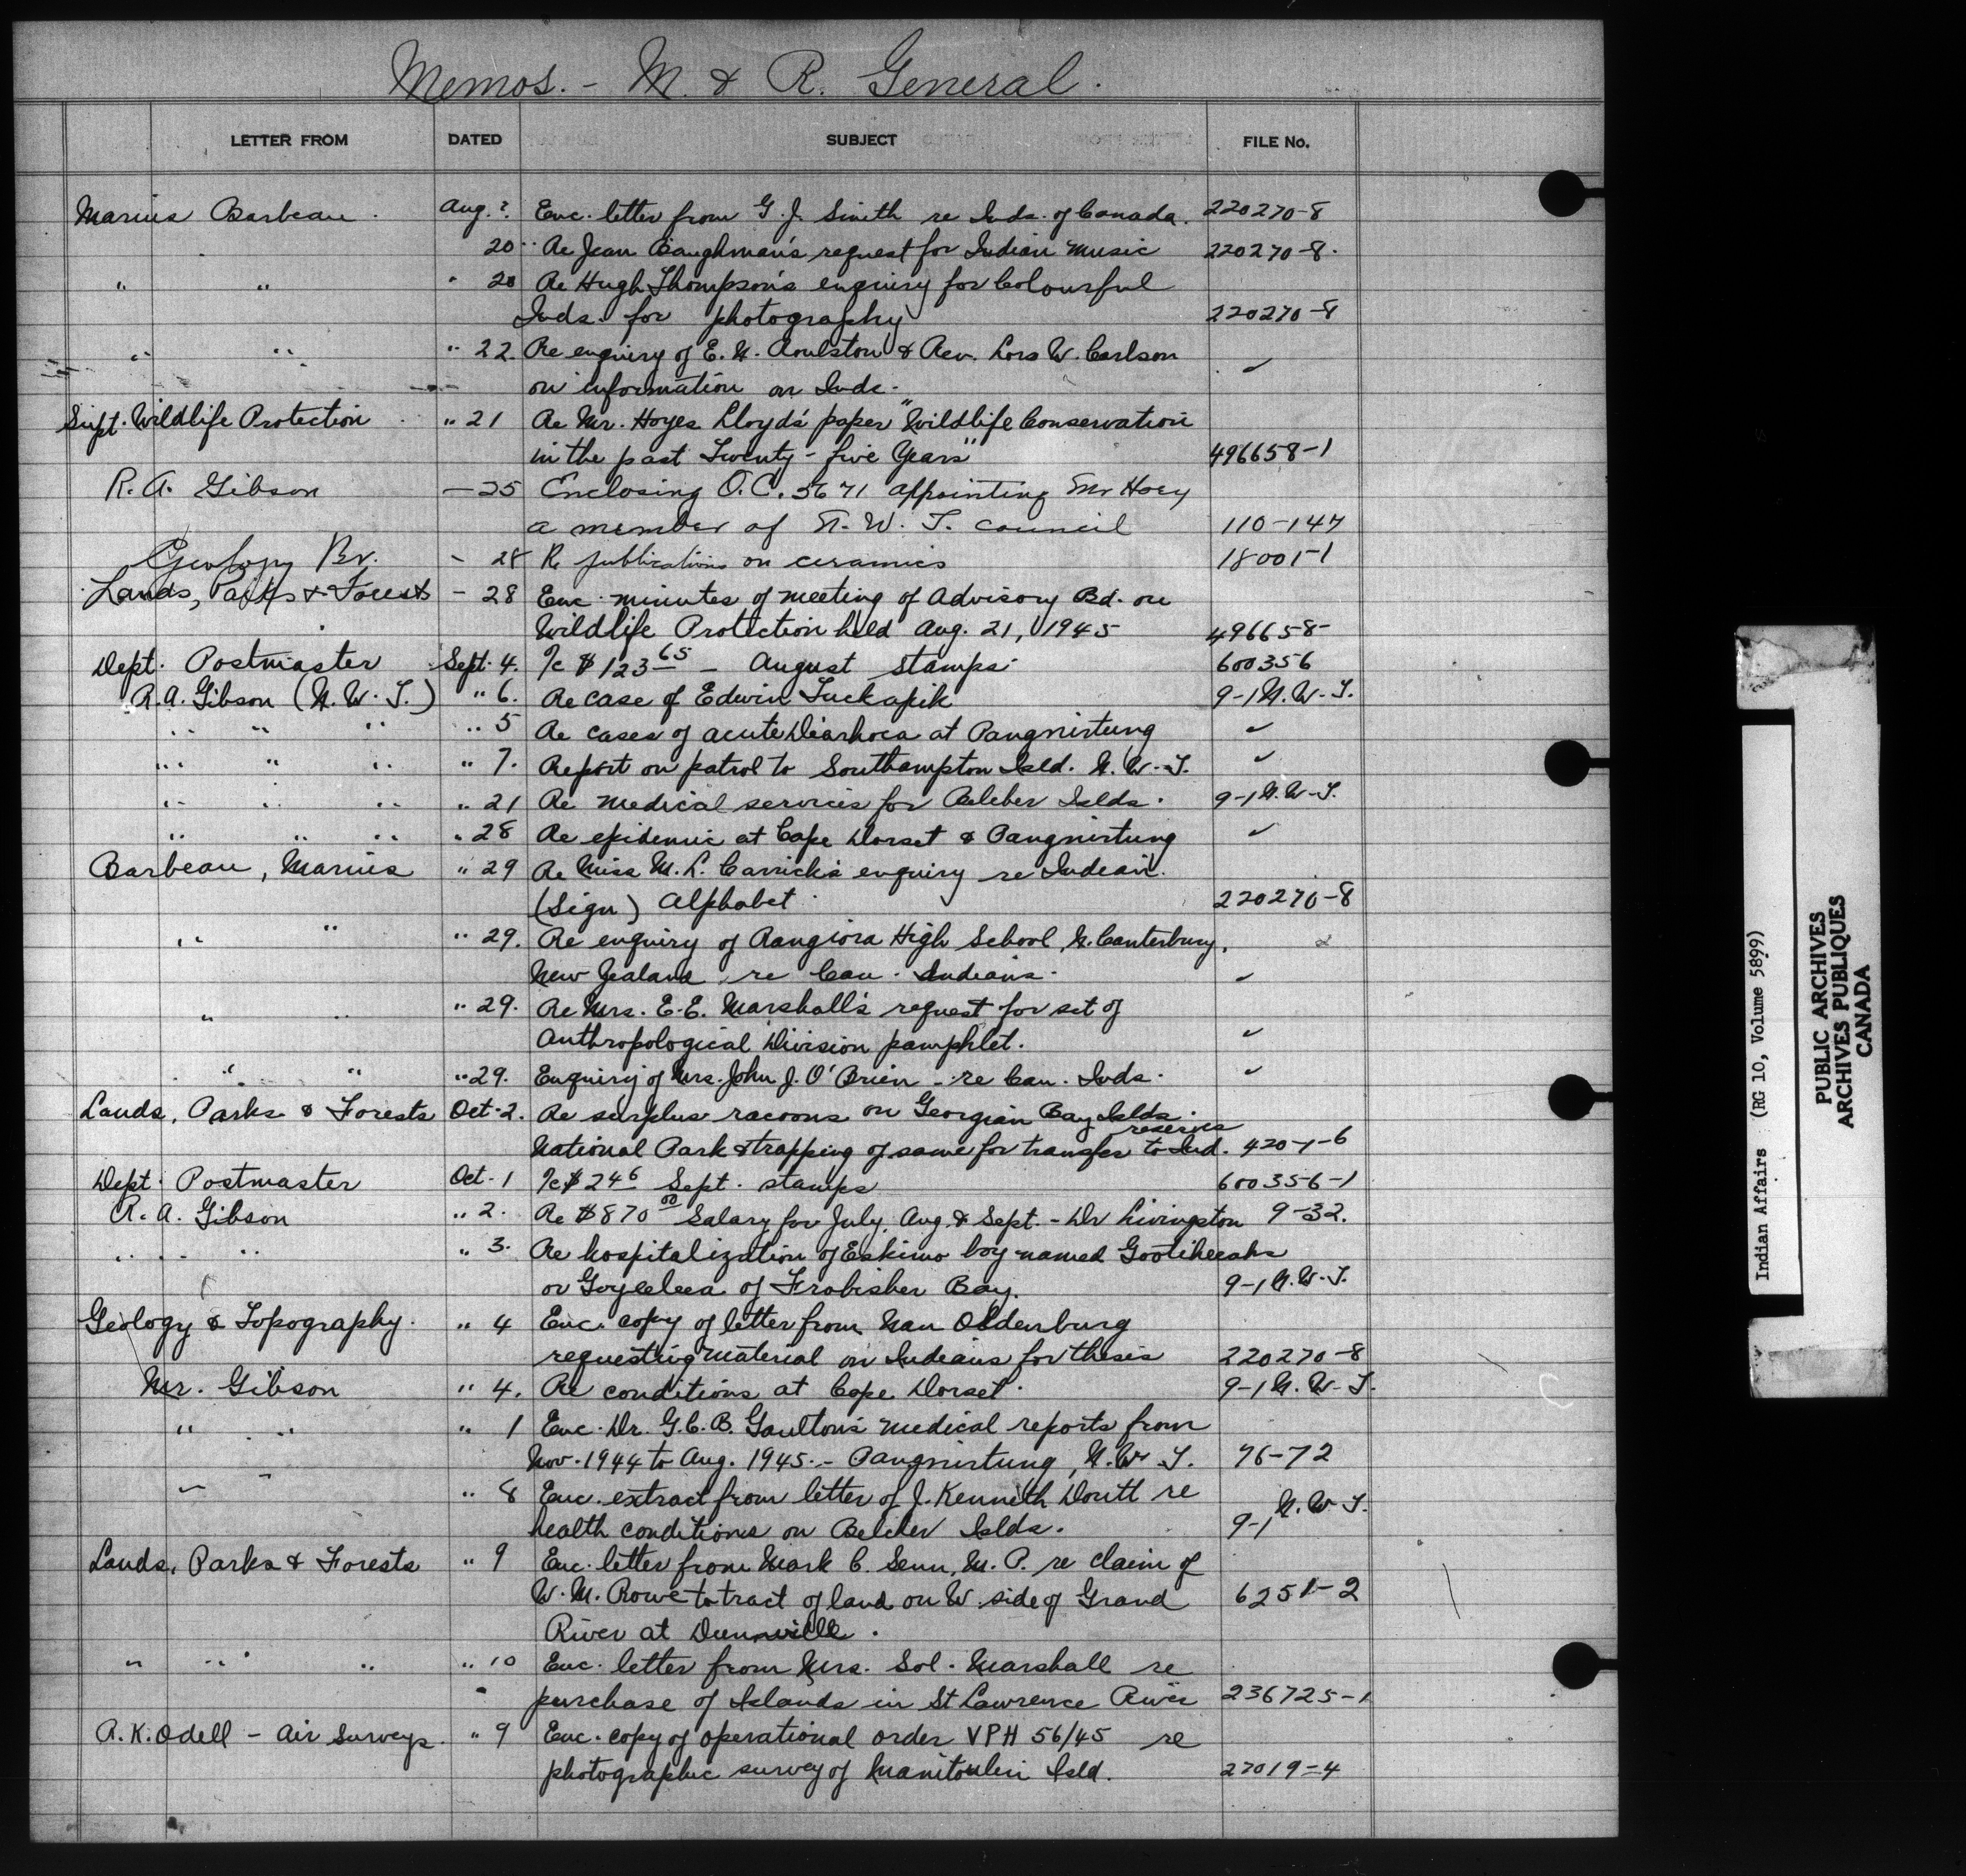 Memos. - M. & R. General.
LETTER FROM DATED SUBJECT FILE No.
Marius Barbeau. Aug. ?. Enc. letter from G. J. Smith re Inds. of Canada. 220270-8
" 20 " Re Jean Baughman's request for Indian Music 220270-8.
" " " 20 Re Hugh Thompson's enquiry for Colourful
Inds. for photography 220270-8
" " " 22. Re enquiry of E. N. Roulston & Rev. Lors W. Carlson ✓
on information on Inds.
Supt. Wildlife Protection " 21 Re Mr. Hoyes Lloyds' paper "Wildlife Conservation
in the past Twenty-five Years" 496658-1
R. A. Gibson — 25 Enclosing O.C. 5671 appointing Mr Hoey
a member of N. W. T. council 110-147
Geology Br. - 28 Re publications on ceramics 18001-1
Lands, Parks & Forests - 28 Enc. minutes of meeting of Advisory Bd. on
Wildlife Protection held Aug. 21, 1945 496658-
Dept. Postmaster Sept. 4. %c $123 65 - August stamps. 600356
R.A. Gibson (N.W.T.) " 6. Re case of Edwin Tuckapik 9-1 N.W.T.
" " " " 5 Re cases of acute Diarhoea at Pangnirtung ✓
" " " " 7. Report on patrol to Southampton Isld. N.W.T. ✓
" " " " 21 Re medical services for Belcher Islds. 9-1 N.W.T.
" " " " 28 Re epidemic at Cape Dorset & Pangnirtung ✓
Barbeau, Marius " 29 Re Miss M. L. Carrick's enquiry re Indian
(Sign) Alphabet. 220270-8
" " " 29. Re enquiry of Rangiora High School, N. Canterbury,
New Zealand, re Can. Indians. ✓
" " " 29. Re Mrs. E. E. Marshall's request for set of
Anthropological Division pamphlet. ✓
" " " 29. Enquiry of Mrs. John J. O'Brien - re Can. Inds. ✓
Lands, Parks & Forests Oct. 2. Re surplus racoons on Georgian Bay Islds.
National Park & trapping of same for transfer to Ind. reserves 420-1-6
Dept. Postmaster Oct. 1 %c $246 Sept. stamps 600356-1
R. A. Gibson " 2. Re $870 00 Salary for July, Aug & Sept. - Dr Livingston 9-32.
" " " " 3. Re hospitalization of Eskimo boy named
or of Frobisher Bay. 9-1 N.W.T.
Geology & Topography. " 4 Enc. copy of letter from Nan Oldenburg
requesting material on Indians for thesis 220270-8
Mr. Gibson " 4. Re conditions at Cape Dorset. 9-1 N.W.T.
" " " 1 Enc. Dr. G.C.B. Gaulton's medical reports from
Nov. 1944 to Aug. 1945 - Pangnirtung, N.W.T. 76-72
" " " 8 Enc. extract from letter of J. Kenneth Doutt re
health conditions on Belcher Islds. 9-1 N.W.T.
Lands, Parks & Forests " 9 Enc. letter from Mark C. Senn, M.P. re claim of
W. M. Rowe to tract of land on W. side of Grand 6251-2
River at Dunnville.
" " " " 10 Enc. letter from Mrs. Sol. Marshall re
purchase of Islands in St Lawrence River 236725-1
R.K. Odell - Air Surveys. " 9 Enc. copy of operational order VPH 56/45 re
photographic survey of Manitoulin Isld. 27019-4
Indian Affairs (RG 10, Volume 5899)
PUBLIC ARCHIVES
ARCHIVES PUBLIQUES
CANADA